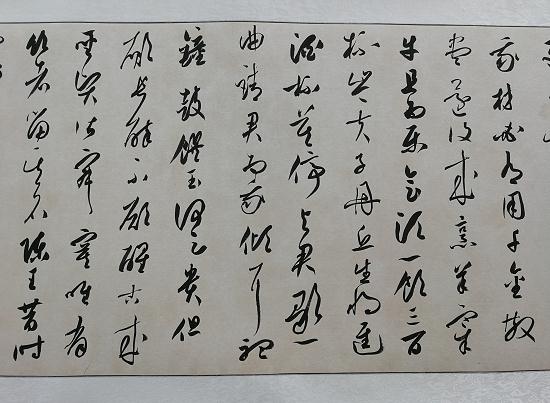 我材必有用千金散
盡還復來烹羊宰
牛且為樂會須一飲三百
杯岑夫子丹丘生將進
酒杯莫停與君歌一
曲請君為我傾耳聽
鐘鼓饌玉何足貴但
願長醉不願醒古來
聖賢皆寂寞唯有
飲者留其名陳王昔時